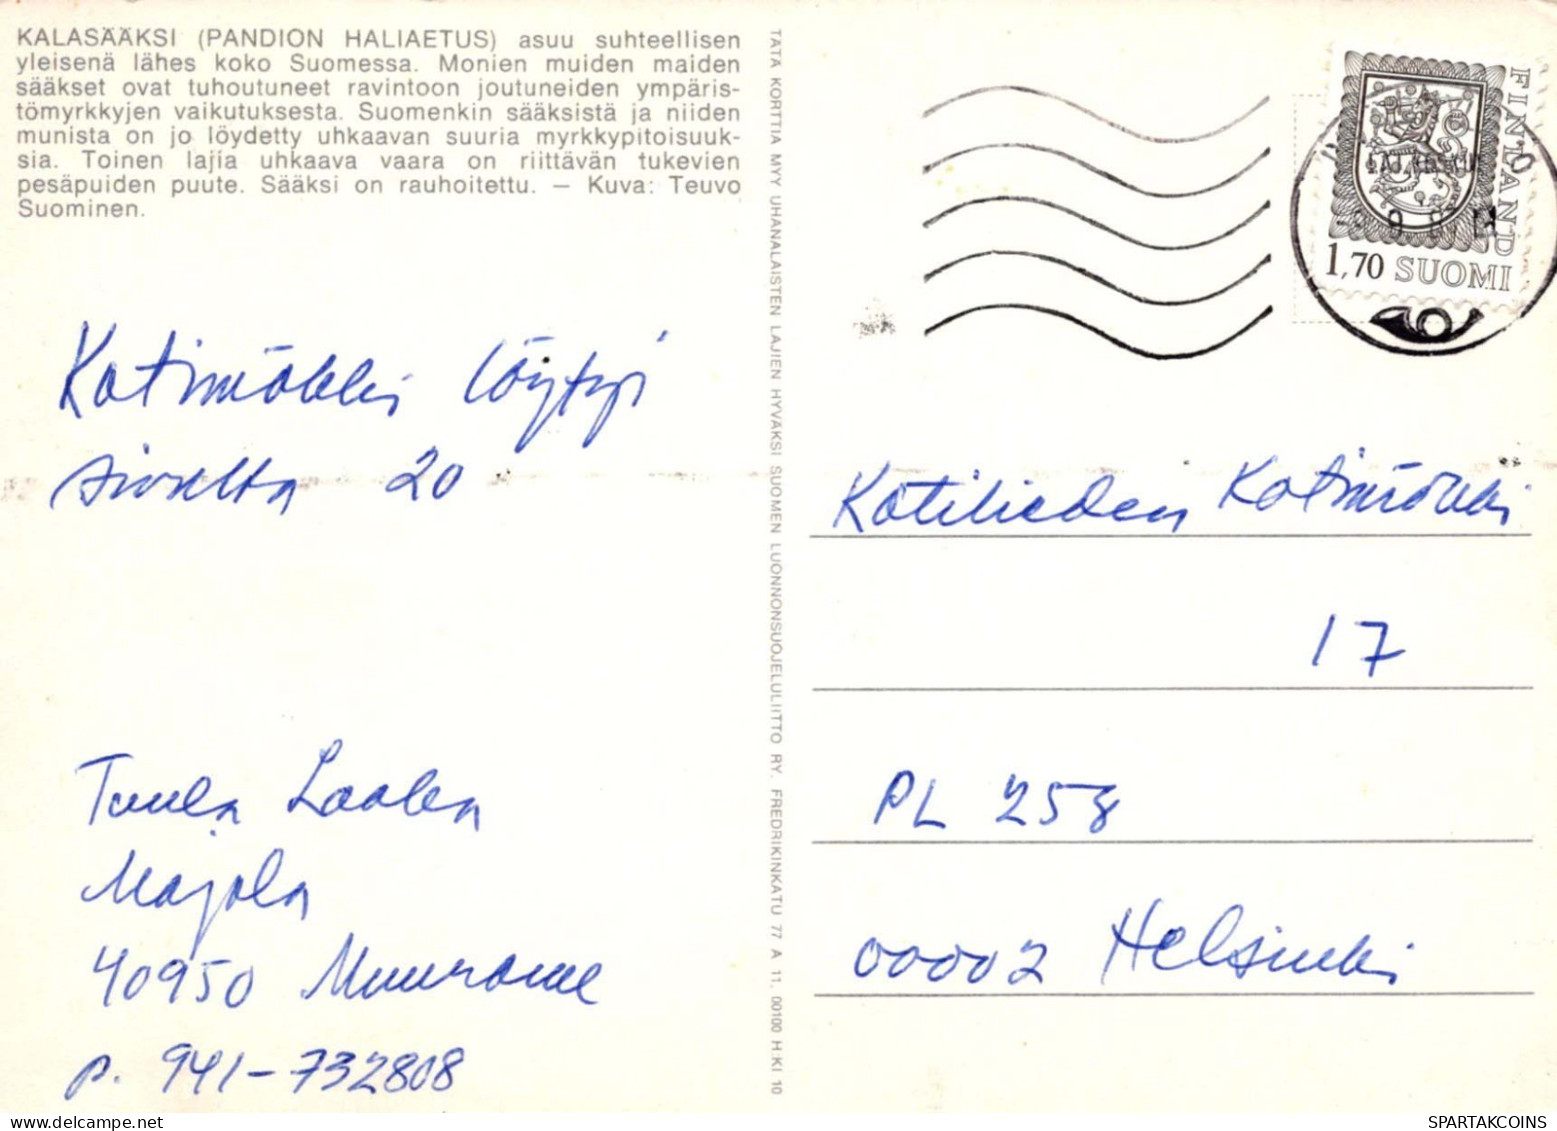 KALASÄÄKSI (PANDION HALIAETUS) asuu suhteellisen
yleisenä lähes koko Suomessa. Monien muiden maiden
sääkset ovat tuhoutuneet ravintoon joutuneiden ympäris-
tömyrkkyjen vaikutuksesta. Suomenkin sääksistä ja niiden
munista on jo löydetty uhkaavan suuria myrkkypitoisuuk-
sia. Toinen lajia uhkaava vaara on riittävän tukevien
pesäpuiden puute. Sääksi on rauhoitettu. — Kuva: Teuvo
Suominen.
Kotimökki löytyi
sivulta 20
Tuula
Majola
40950 Muurame
p. 941-732808
TÄTÄ KORTTIA MYY UHANALAISTEN LAJIEN HYVÄKSI SUOMEN LUONNONSUOJELULIITTO RY. FREDRIKINKATU 77 A 11. 00100 H:KI 10
FINLAND
1,70 SUOMI
Kotilieden Kotimökki
17
PL 258
00002 Helsinki
SPARTAKCOINS
delcampe.net